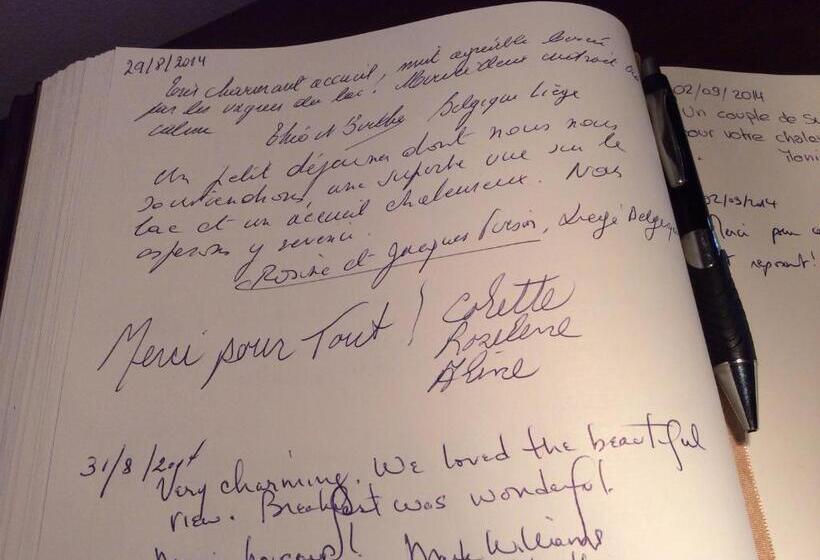 29/8/2014
Très charmant accueil, nuit agréable bercé
par les vagues du lac! Merveilleux endroit
calme
Belgique Liège
Un petit déjeuner dont nous nous
souviendrons, une superbe vue sur le
lac et un accueil chaleureux. Nous
esperons y revenir.
Rosine et Jacques, Liegè Belgique
Merci pour Tout! Colette
Roselene
Aline
31/8/2014
Very charming. We loved the beautiful
view. Breakfast was wonderful.
Mark Williams
02/09/2014
Un couple de
pour votre
02/09/2014
Merci pour